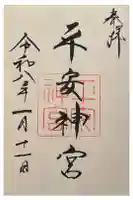 奉拝
平安神宮
令和八年一月十一日